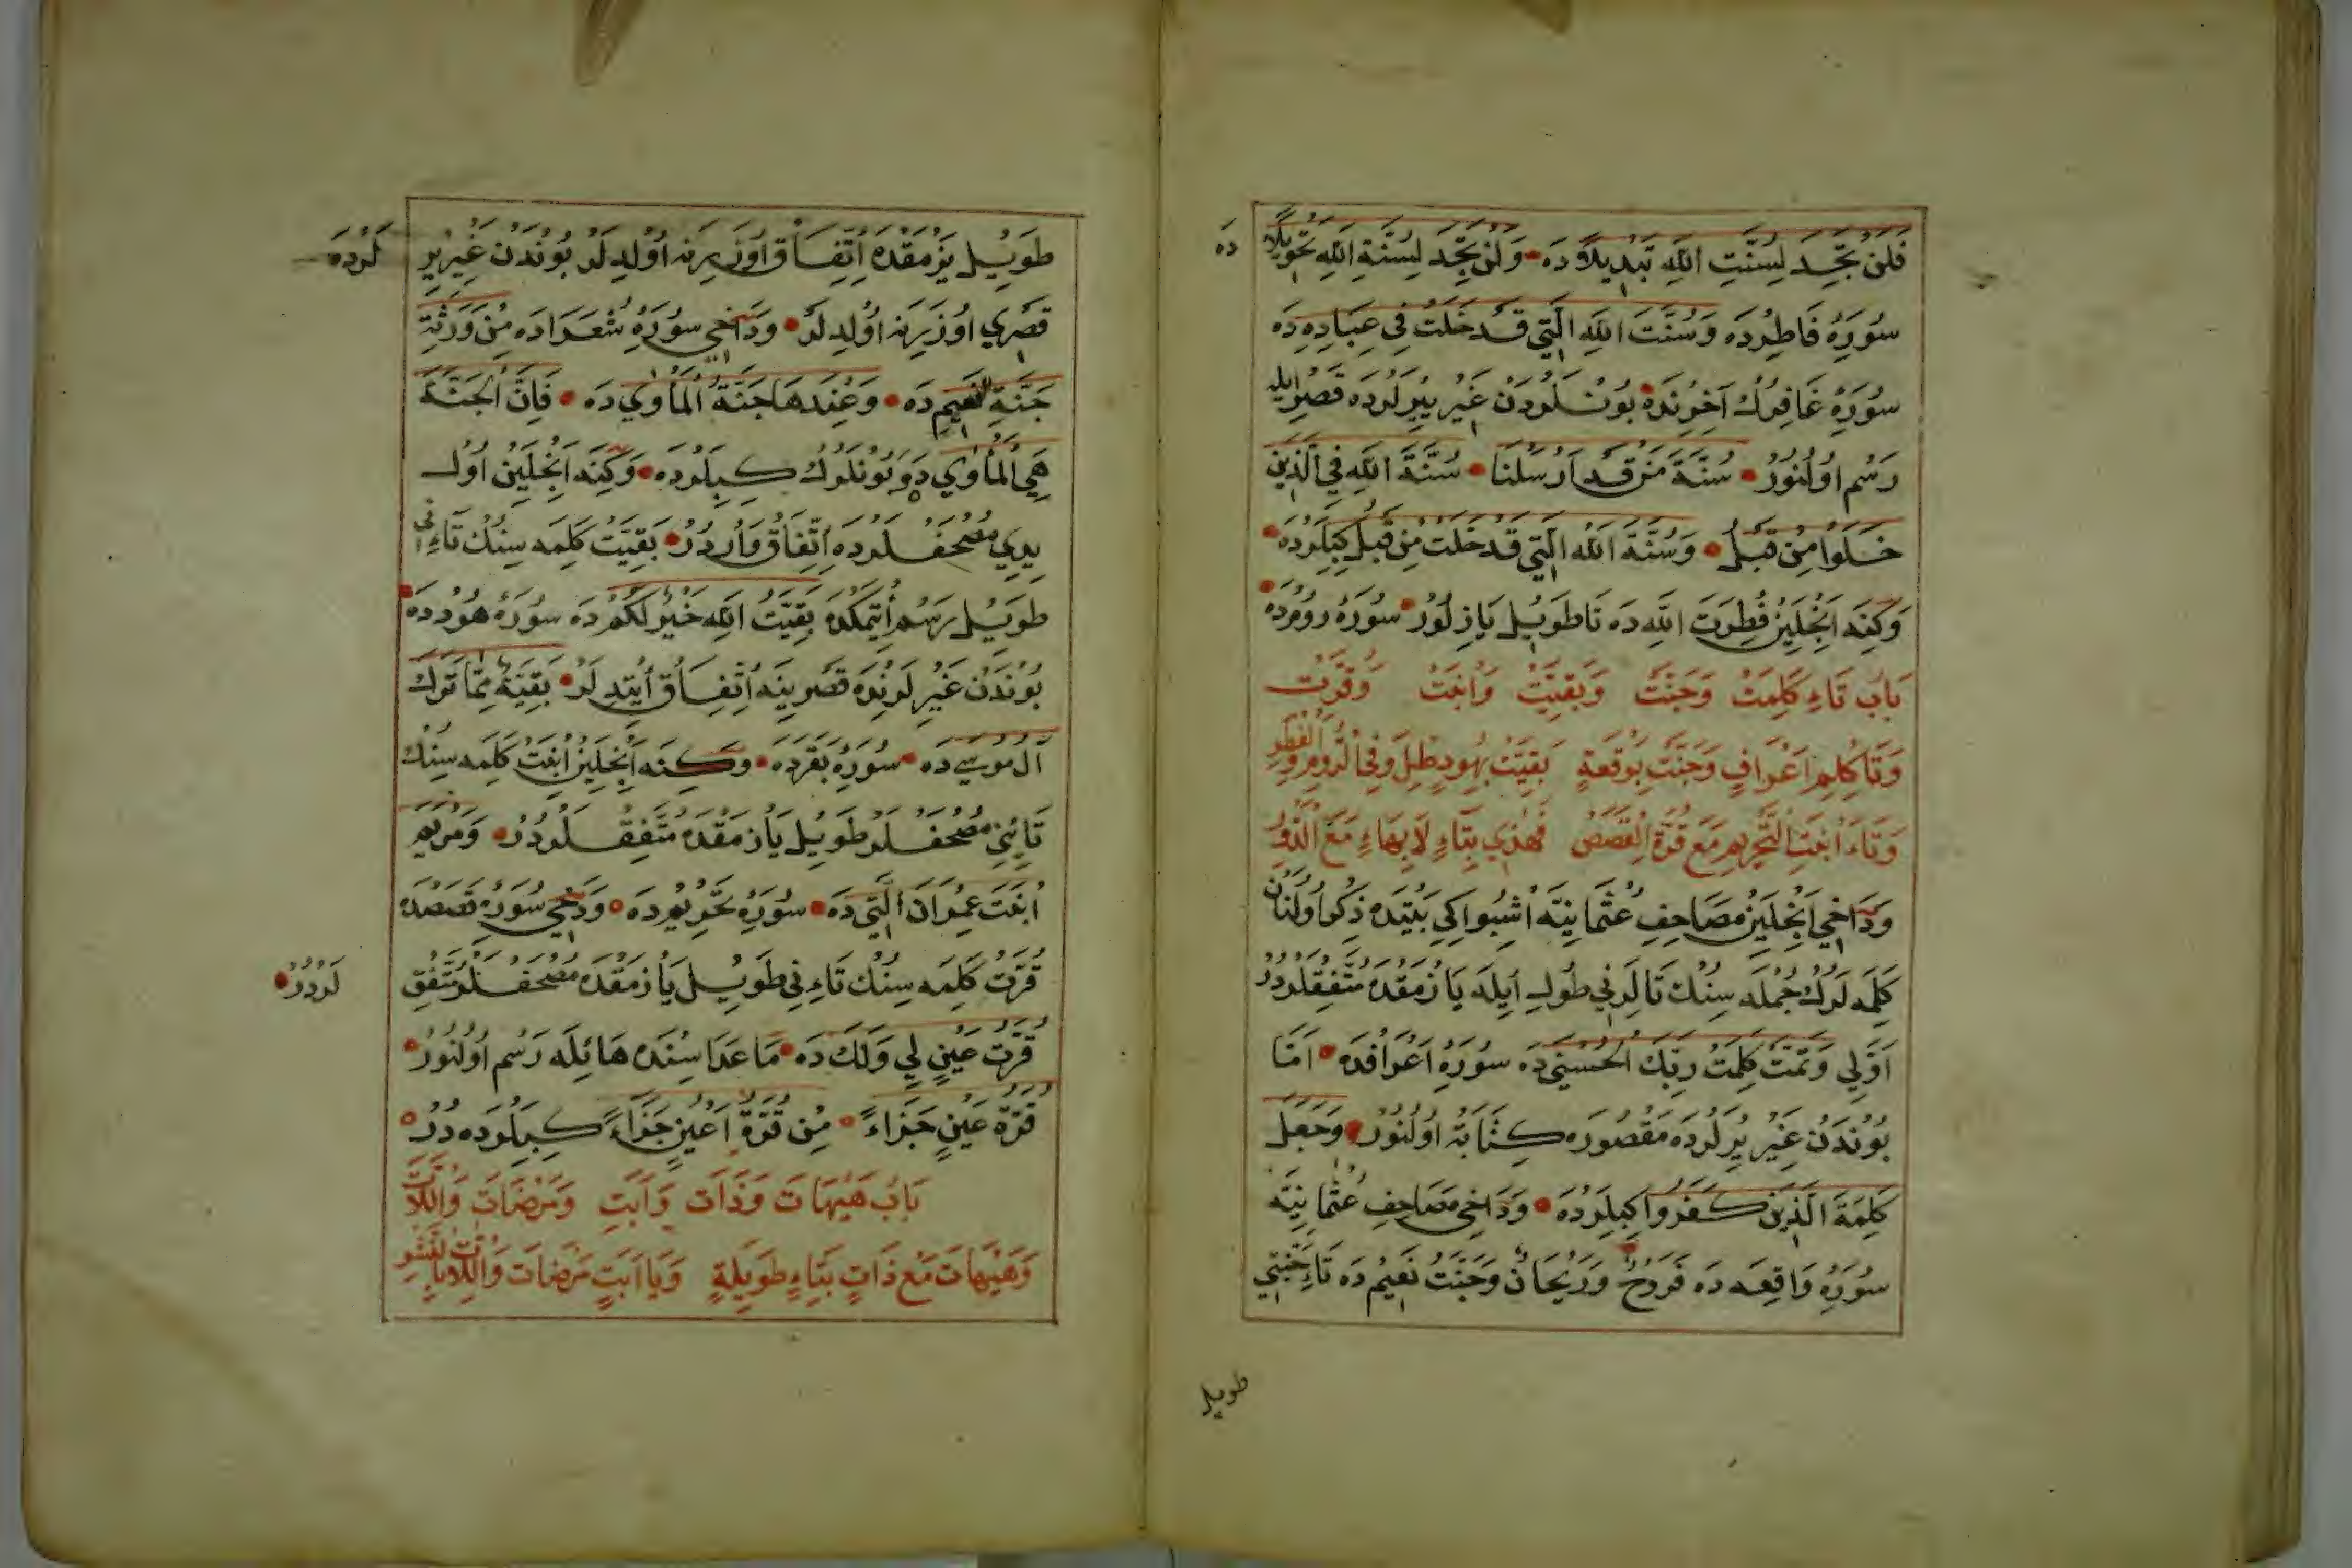 فَلَنْ تَجِدَ لِسُنَّتِ اللَّهِ تَبْدِيلًا دَه وَلَنْ تَجِدَ لِسُنَّةِ اللَّهِ تَحْوِيلًا دَه
سُورَهِٔ فَاطِرْدَه وَسُنَّتَ اللَّهِ الَّتِي قَدْ خَلَتْ فِي عِبَادِهِ دَه
سُورَهِٔ غَافِرُكْ آخِرِنْدَه بُونْلَرْدَنْ غَيْرِ يِيرْلَرْدَه قَصْرِ ايله
رَسْم اوُلُنُورْ سُنَّةَ مَنْ قَدْ اَرْسَلْنَا سُنَّةَ اللَّهِ فِي الَّذِينَ
خَلَوْا مِنْ قَبْلُ وَسُنَّةَ اللَّهِ الَّتِي قَدْ خَلَتْ مِنْ قَبْلُ كِبِيلَرْدَه
وَكِنَه اَنْجِلَيِنْ فِطْرَتَ اللَّهِ دَه تَا طَوِيلْ يَازِلُورْ سُورَهِٔ رُومْدَه
بَابُ تَاءِ كَلِمَتُ وَجَنَّتُ وَبَقِيَّتُ وَابْنَتُ وَقُرَّتُ
وَتَا كَلِمِ اَعْرَافٍ وَجَنَّتِ بِوَقْعَةٍ بَقِيَّتُ بِهُودٍ طِلْ وَفِي الرُّومِ وَالْفِطَرِ
وَتَاءَ ابْنَتِ التَّحْرِيمِ مَعَ قُرَّةِ الْقَصَصْ فَهَذِي بِتَاءٍ لَا بِهَاءٍ مَعَ الذُّوَلِ
وَدَاخِي اَنْجِلَيِنْ مَصَاحِفِ عُثْمَانِيَّه اُشْبُو اِكِي بَيْتِدَه ذِكْر اوُلُنَانْ
كَلِمَه لَرُكْ جُمْلَه سِنُكْ تَالَرِنِي طُولِ اِيلَه يَازْمَقْدَه مُتَّفِقْلَرْدُرْ
اَوَّلِي وَتَمَّتْ كَلِمَتُ رَبِّكَ الْحُسْنَى دَه سُورَهِٔ اَعْرَافْدَه اَمَّا
بُونْدَنْ غَيْرِ يِرْلَرْدَه مَقْصُورَه كِتَابَة اوُلُنُورْ وَجَعَلَ
كَلِمَةَ الَّذِينَ كَفَرُوا كِبِيلَرْدَه وَدَاخِي مَصَاحِفِ عُثْمَانِيَّه
سُورَهِٔ وَاقِعَه دَه فَرَوْحٌ وَرَيْحَانٌ وَجَنَّتُ نَعِيمْ دَه تَاءِ جَنَّتِي
طويل
طَوِيلْ يَزْمَقْدَه اِتِّفَاقْ اوُزَرِنَه اوُلْدِلَرْ بُونْدَنْ غَيْرِ يِرْ لَرْدَه
قَصْرِي اوُزَرِنَه اوُلْدِلَرْ وَدَاخِي سُورَهِٔ شُعَرَادَه مِنْ وَرَثَةِ
جَنَّةِ النَّعِيمِ دَه وَعِنْدَهَا جَنَّةُ الْمَأْوَي دَه فَاِنَّ الْجَنَّةَ
هِيَ الْمَأْوَي دَه وَبُونْلَرُكْ كِبِيلَرْدَه وَكِنَه اَنْجِلَيِنْ اوُلْ
يِدِي مُصْحَفْلَرْدَه اِتِّفَاقْ وَارْدُرْ بَقِيَّتُ كَلِمَه سِنُكْ تَاءِنِي
طَوِيلْ رَسْم اِتْمَكْدَه بَقِيَّتُ اللَّهِ خَيْرٌ لَكُمْ دَه سُورَهِٔ هُودْدَه
بُونْدَنْ غَيْرِ لَرِنْدَه قَصْرِينَه اِتِّفَاقْ اِيتْدِلَرْ بَقِيَّةٌ مِمَّا تَرَكَ
آلُ مُوسَى دَه سُورَهِٔ بَقَرَدَه وَكِنَه اَنْجِلَيِنْ ابْنَتُ كَلِمَه سِنُكْ
تَائِنِي مُصْحَفْلَرْ طَوِيلْ يَازْمَقْدَه مُتَّفِقْلَرْدُرْ وَمَرْيَمَ
ابْنَتَ عِمْرَانَ الَّتِي دَه سُورَهِٔ تَحْرِيمْدَه وَدَخِي سُورَهِٔ قَصَصْدَه
قُرَّتُ كَلِمَه سِنُكْ تَاءِنِي طَوِيلْ يَازْمَقْدَه مُصْحَفْلَرْ مُتَّفِقْ لَرْدُرْ
قُرَّتُ عَيْنٍ لِي وَلَكَ دَه مَا عَدَا سِنْدَه هَائِلَه رَسْم اوُلُنُورْ
قُرَّةَ عَيْنٍ جَزَاءً مِنْ قُرَّةِ اَعْيُنٍ جَزَاءً كِبِيلَرْدَه دُرْ
بَابُ هَيْهَاتَ وَذَاتَ وَاَبَتِ وَمَرْضَاتَ وَاللَّاتَ
وَهَيْهَاتَ مَعْ ذَاتٍ بِتَاءٍ طَوِيلَةٍ وَيَا اَبَتِ مَرْضَاتَ وَاللَّاتَ